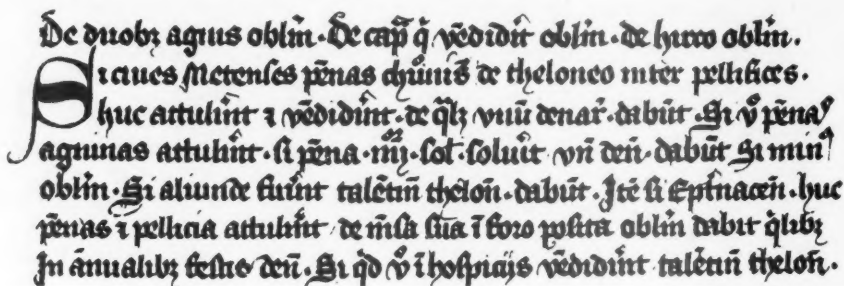 De duobꝫ agnis obl̄m · De cap̄a q̄ vēdidit obl̄m · de hirco obl̄m ·
Si ciues Metenses pēnas de theloneo inter pellifices ·
huc attulint ⁊ vēdidint · de q̄lꝫ vnū denar̄ · dabūt · Si v̊ pēnas
agninas attulint · si pēna · iiij · sol · soluit vn̄ den̄ · dabūt Si min⁹
obl̄m · Si aliunde fuint talētm̄ thelon̄ · dabūt · Itē si · huc
pēnas ⁊ pellicia attulint de mēsa sua ī foro posita obl̄m dabit q̄libꝫ
In ānualibꝫ festis den̄ · Si qd̄ v̊ ī hospicijs vēdidint talētm̄ thelon̄ ·